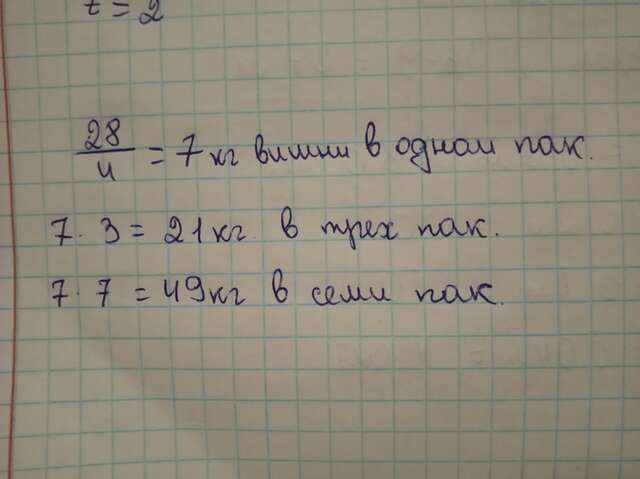 t = 2
28/4 = 7 кг вишни в одном пак.
7 · 3 = 21 кг в трех пак.
7 · 7 = 49 кг в семи пак.